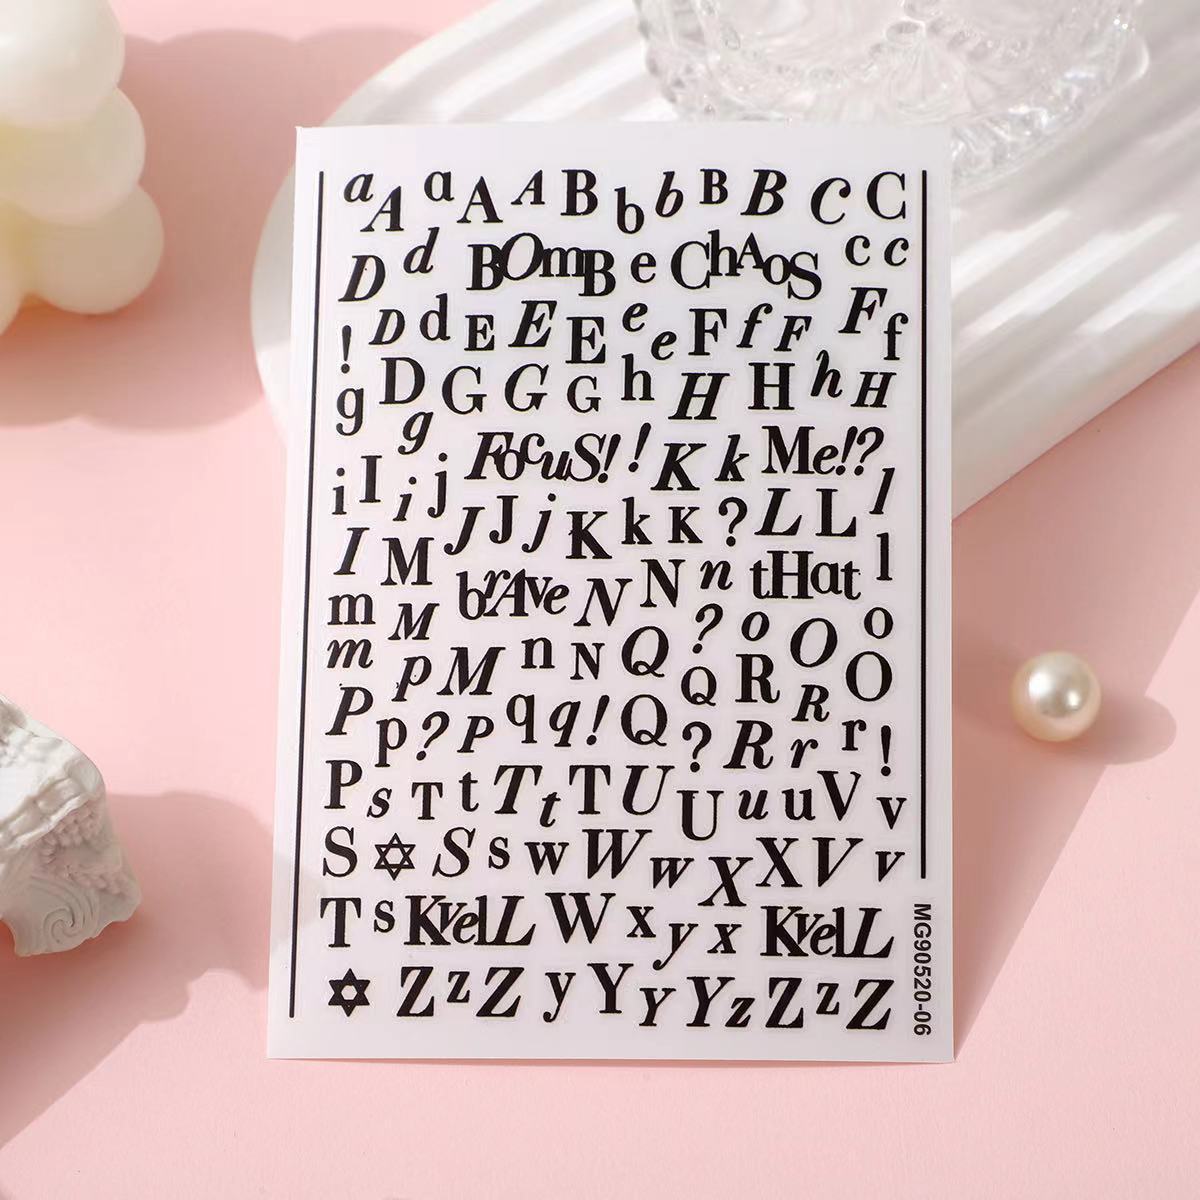 a A a A A B b b B B C C
D d BOmB e ChAoS c c
! D d E E E e e F f F F f
g D g G G G h H H h H
i I i j FocuS! ! K k Me!? l
I M J J j K k K ? L L l
m M brAve N N n tHat
m p M n N Q ? o O o
P p ? P q q ! Q Q R R O
P s T t T t T U ? R r r !
U u u V v
S ✡ S s w W w X X V v
T s KvelL W x y x KvelL
✡ Z z Z y Y Y Y z Z z Z
MG90520-06